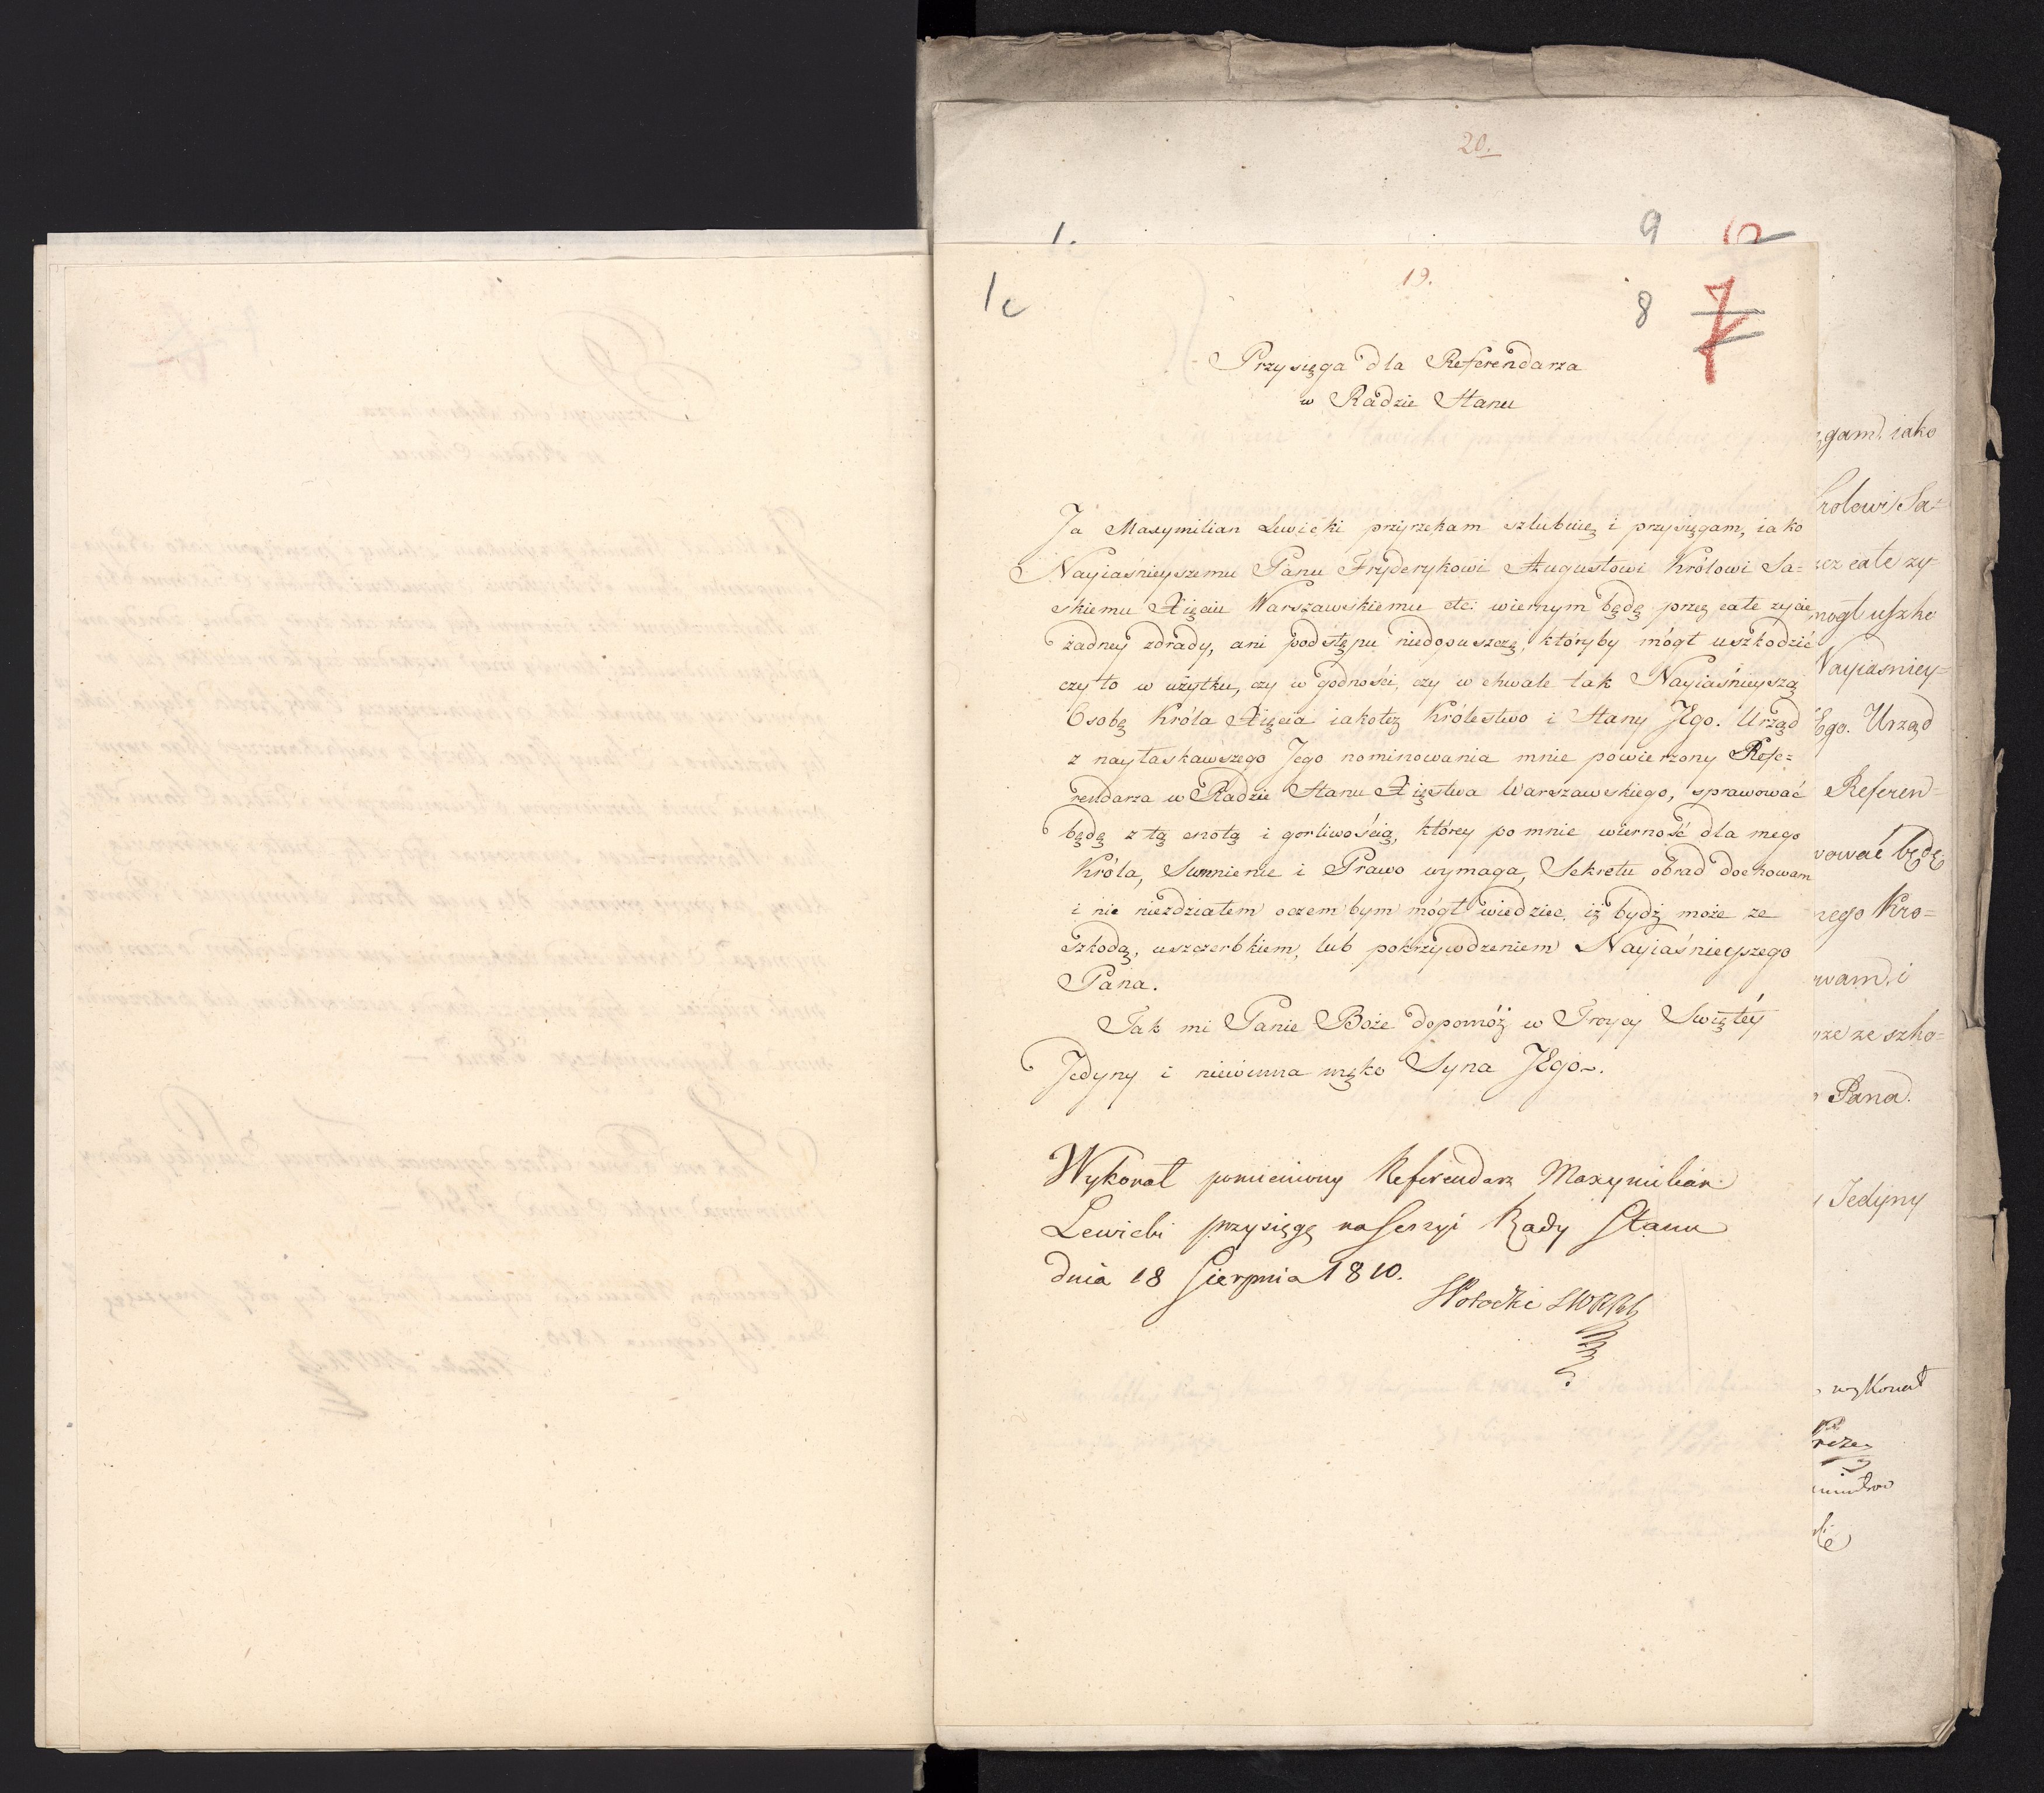 20.
1.
9
1c
19.
8
7
Przysięga dla Referendarza
w Radzie Stanu
Ja Maxymilian Lewicki przyrzekam szlubuię i przysięgam, iako
Nayiaśnieyszemu Panu Fryderykowi Augustowi Królowi Sa=
skiemu Xięciu Warszawskiemu etc: wiernym będę przez całe zycie
żadney zdrady, ani podstępu niedopuszczę, któryby mógł uszkodzić
czy to w użytku, czy w godności, czy w chwale tak Nayiaśnieyszą
Osobę Króla Xięcia iakotez Królestwo i Stany JEgo. Urząd
z nayłaskawszego Jego nominowania mnie powierzony Refe=
rendarza w Radzie Stanu Xięstwa Warszawskiego, sprawować
będę z tą cnotą i gorliwością, którey po mnie wierność dla mego
Króla, Sumnienie i Prawo wymaga, Sekretu obrad dochowam
i nic niezdziałem oczem bym mógł wiedziec, iż bydź może ze
szkodą, uszczerbkiem, lub pokrzywdzeniem Nayiaśnieyszego
Pana.
Tak mi Panie Boże dopomóż w Troycy Swiętéy
Jedyny i niewinna męko Syna JEgo.
Wykonał pomieniony Referendarz Maxymilian
Lewicki przysięgę na Sessyi Rady Stanu
dnia 18 Sierpnia 1810.
SPotocki
gam, iako
rolowi Sa=
cez całe zy=
mogł uszko
Nayiasniey=
Ego. Urząd
Referen=
wować będę
nego Kro=
wam, i
ze ze szko=
Pana.
Jedyny
wykonał